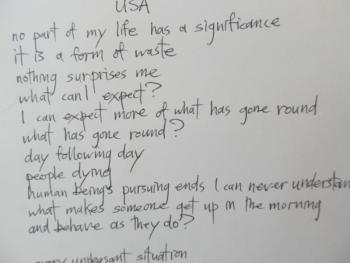 USA
no part of my life has a significance
it is a form of waste
nothing surprises me
what can I expect?
I can expect more of what has gone round
what has gone round?
day following day
people dying
human beings pursuing ends I can never understan
what makes someone get up in the morning
and behave as they do?
unpleasant situation